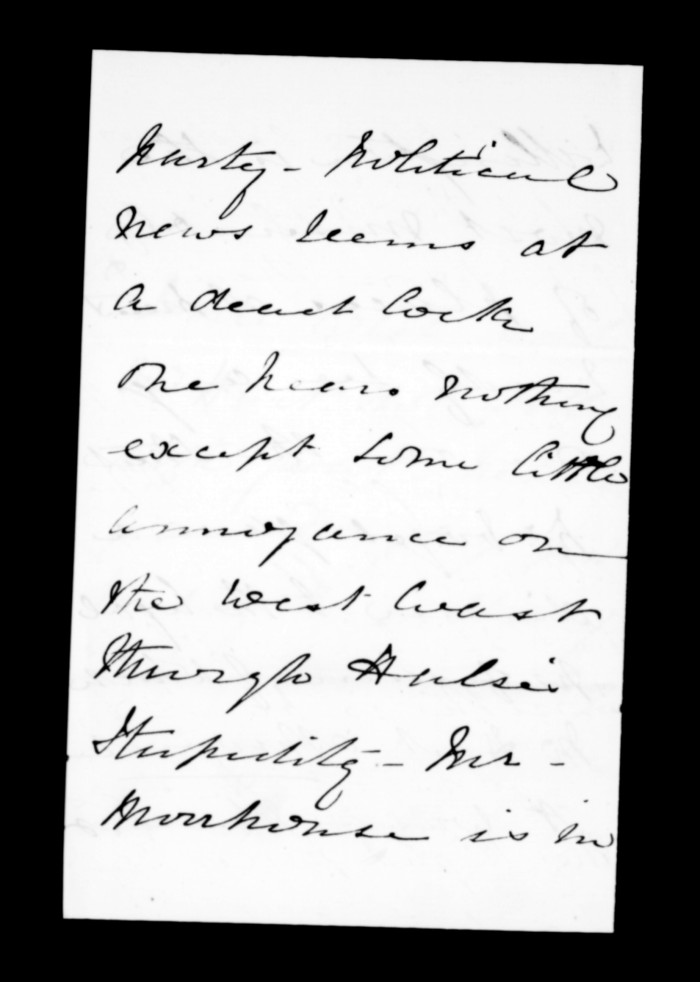 party - Political
news seems at
a dead lock
one hears nothing
except some little
annoyance on
the West Coast
through Hulse's
Stupidity - Mr -
Moorhouse is in